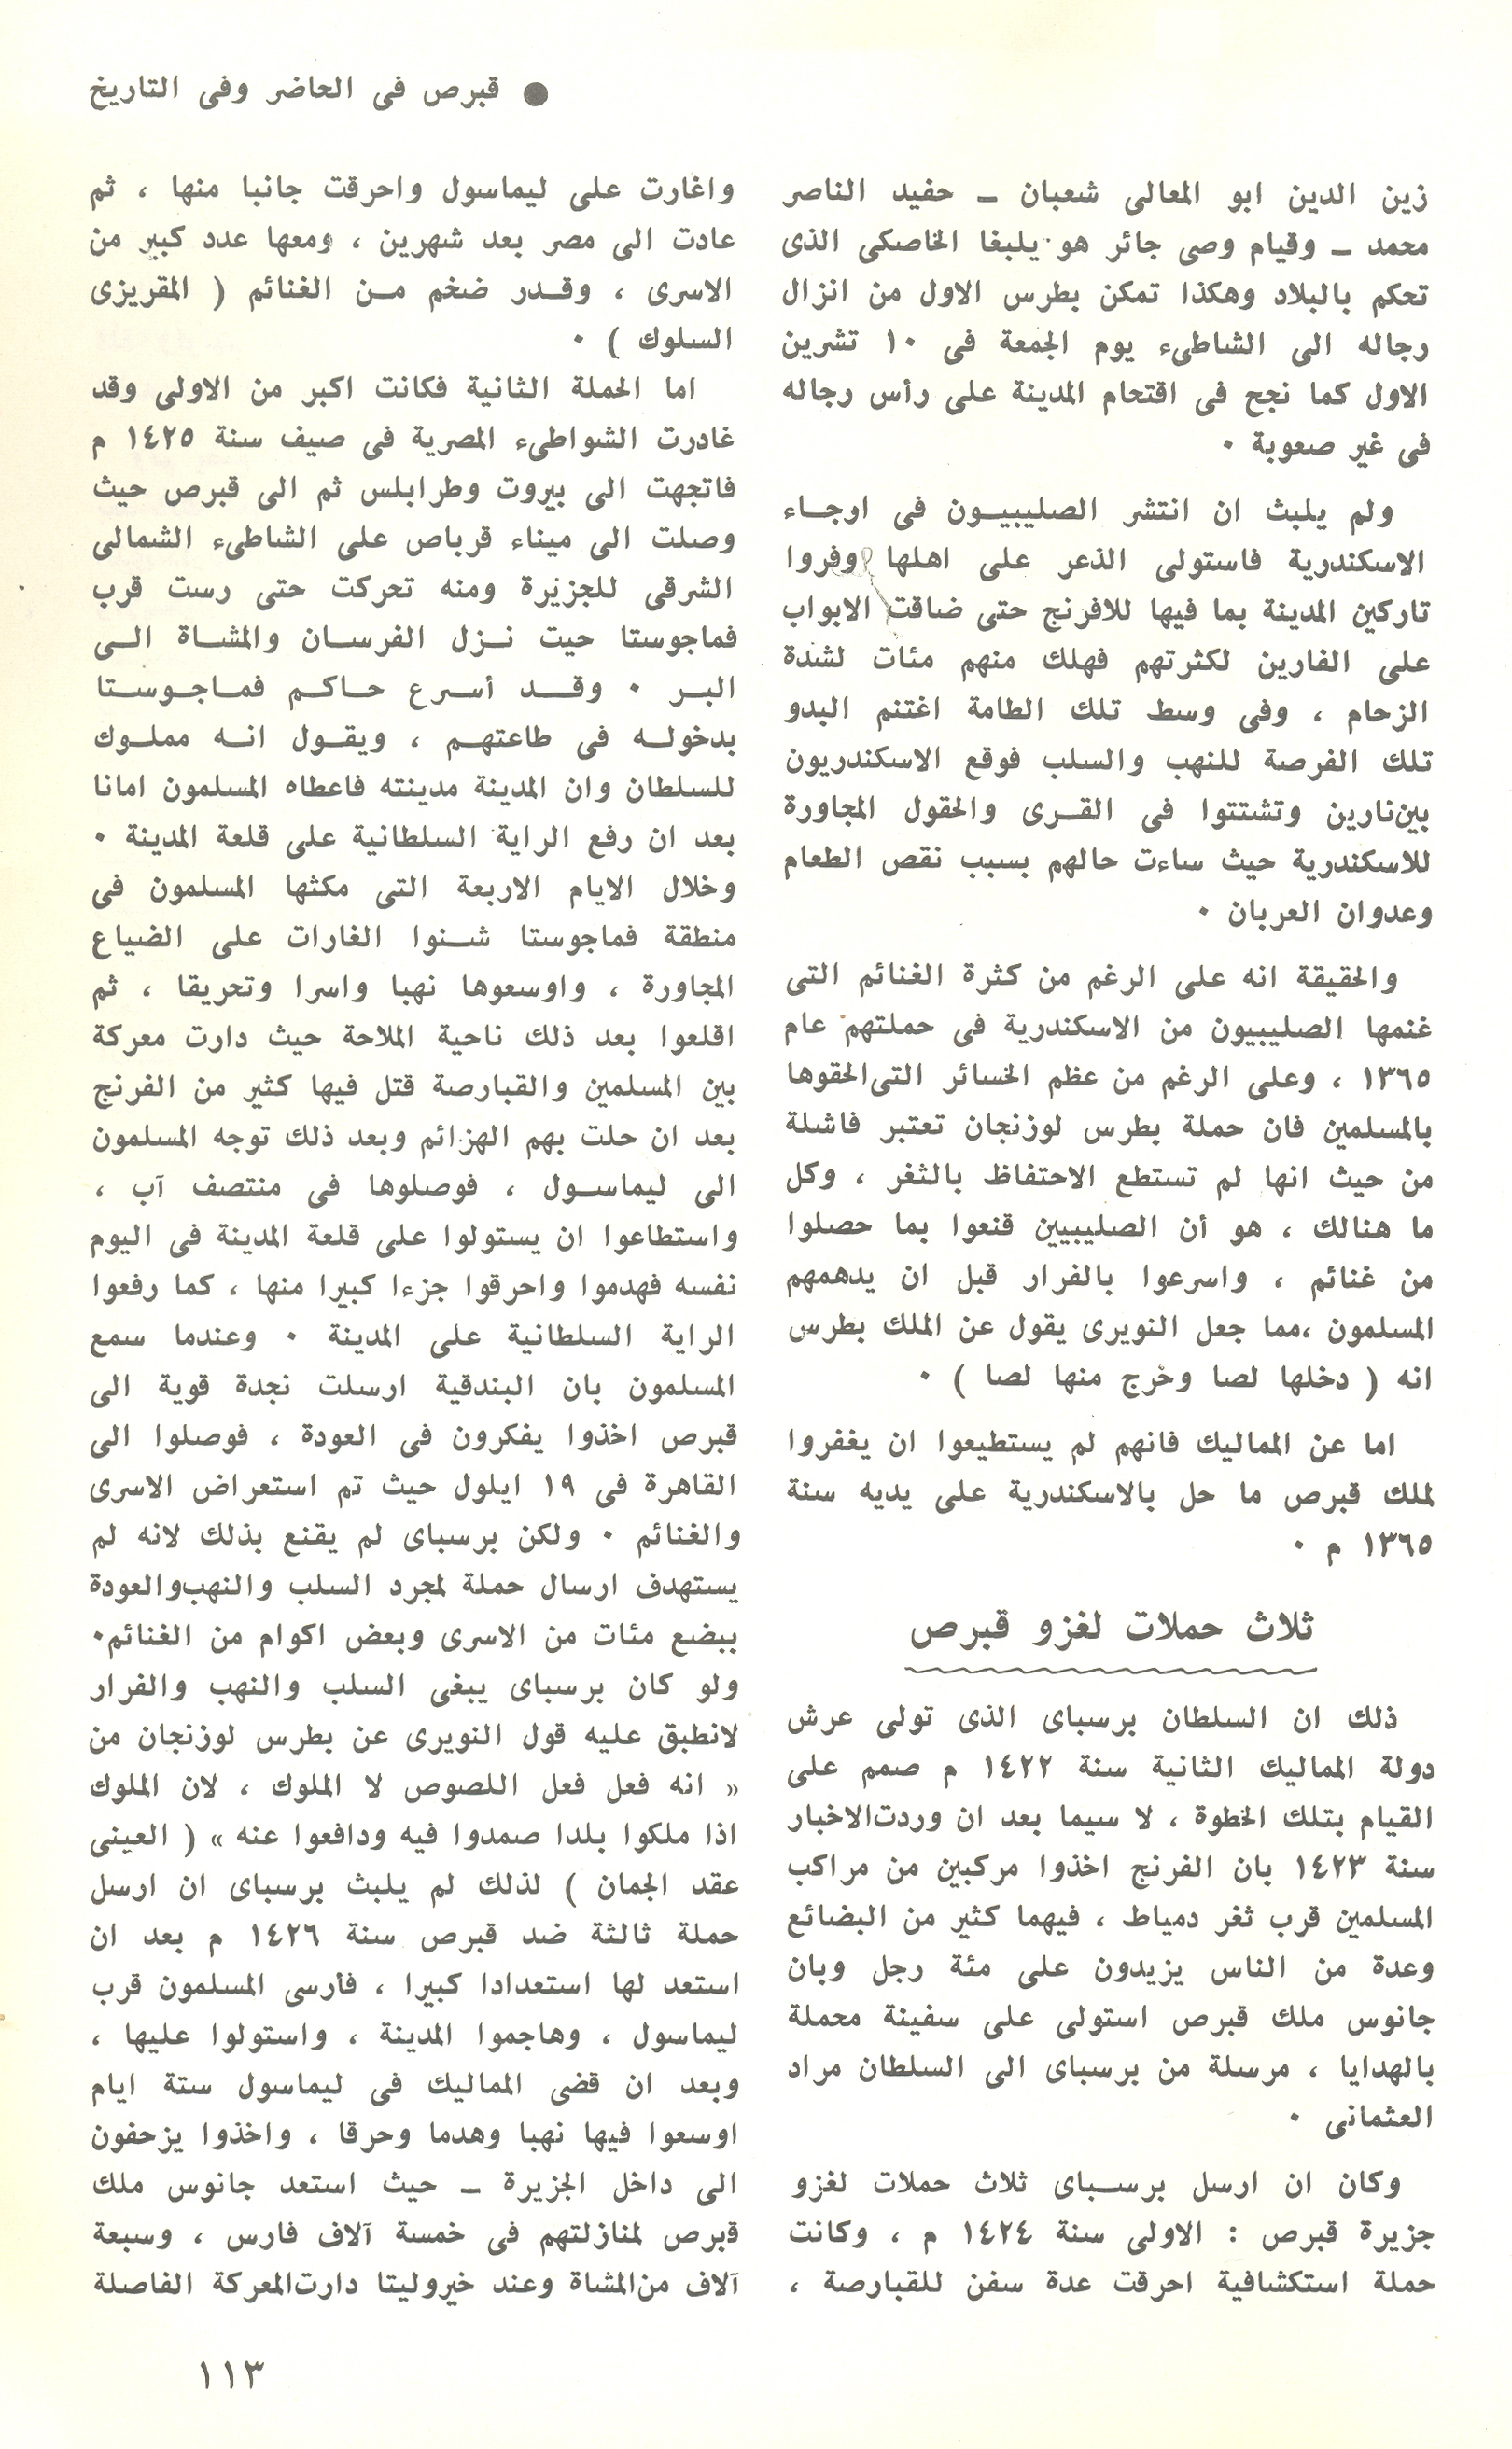 ● قبرص فى الحاضر وفى التاريخ
زين الدين ابو المعالى شعبان ــ حفيد الناصر
محمد ــ وقيام وصى جائر هو يلبغا الخاصكى الذى
تحكم بالبلاد وهكذا تمكن بطرس الاول من انزال
رجاله الى الشاطىء يوم الجمعة فى ١٠ تشرين
الاول كما نجح فى اقتحام المدينة على رأس رجاله
فى غير صعوبة ٠
ولم يلبث ان انتشر الصليبيــون فى ارجــاء
الاسكندرية فاستولى الذعر على اهلها وفروا
تاركين المدينة بما فيها للافرنج حتى ضاقت الابواب
على الفارين لكثرتهم فهلك منهم مئات لشدة
الزحام ، وفى وسط تلك الطامة اغتنم البدو
تلك الفرصة للنهب والسلب فوقع الاسكندريون
بين نارين وتشتتوا فى القــرى والحقول المجاورة
للاسكندرية حيث ساءت حالهم بسبب نقص الطعام
وعدوان العربان ٠
والحقيقة انه على الرغم من كثرة الغنائم التى
غنمها الصليبيون من الاسكندرية فى حملتهم عام
١٣٦٥ ، وعلى الرغم من عظم الخسائر التى الحقوها
بالمسلمين فان حملة بطرس لوزنجان تعتبر فاشلة
من حيث انها لم تستطع الاحتفاظ بالثغر ، وكل
ما هنالك ، هو أن الصليبيين قنعوا بما حصلوا
من غنائم ، واسرعوا بالفرار قبل ان يدهمهم
المسلمون ،مما جعل النويرى يقول عن الملك بطرس
انه ( دخلها لصا وخرج منها لصا ) ٠
اما عن المماليك فانهم لم يستطيعوا ان يغفروا
لملك قبرص ما حل بالاسكندرية على يديه سنة
١٣٦٥ م ٠
ثلاث حملات لغزو قبرص
ذلك ان السلطان برسباى الذى تولى عرش
دولة المماليك الثانية سنة ١٤٢٢ م صمم على
القيام بتلك الخطوة ، لا سيما بعد ان وردت الاخبار
سنة ١٤٢٣ بان الفرنج اخذوا مركبين من مراكب
المسلمين قرب ثغر دمياط ، فيهما كثير من البضائع
وعدة من الناس يزيدون على مئة رجل وبان
جانوس ملك قبرص استولى على سفينة محملة
بالهدايا ، مرسلة من برسباى الى السلطان مراد
العثمانى ٠
وكان ان ارسل برســباى ثلاث حملات لغزو
جزيرة قبرص : الاولى سنة ١٤٢٤ م ، وكانت
حملة استكشافية احرقت عدة سفن للقبارصة ،
واغارت على ليماسول واحرقت جانبا منها ، ثم
عادت الى مصر بعد شهرين ، ومعها عدد كبير من
الاسرى ، وقــدر ضخم مــن الغنائم ( المقريزى
السلوك ) ٠
اما الحملة الثانية فكانت اكبر من الاولى وقد
غادرت الشواطىء المصرية فى صيف سنة ١٤٢٥ م
فاتجهت الى بيروت وطرابلس ثم الى قبرص حيث
وصلت الى ميناء قرباص على الشاطىء الشمالى
الشرقى للجزيرة ومنه تحركت حتى رست قرب
فماجوستا حيت نــزل الفرســان والمشــاة الــى
البــر ٠ وقــد أسرع حــاكــم فمــاجــوســتا
بدخولــه فى طاعتهــم ، ويقــول انــه مملــوك
للسلطان وان المدينة مدينته فاعطاه المسلمون امانا
بعد ان رفع الراية السلطانية على قلعة المدينة ٠
وخلال الايام الاربعة التى مكثها المسلمون فى
منطقة فماجوستا شــنوا الغارات على الضياع
المجاورة ، واوسعوها نهبا واسرا وتحريقا ، ثم
اقلعوا بعد ذلك ناحية الملاحة حيث دارت معركة
بين المسلمين والقبارصة قتل فيها كثير من الفرنج
بعد ان حلت بهم الهزائم وبعد ذلك توجه المسلمون
الى ليماســول ، فوصلوها فى منتصف آب ،
واستطاعوا ان يستولوا على قلعة المدينة فى اليوم
نفسه فهدموا واحرقوا جزءا كبيرا منها ، كما رفعوا
الراية السلطانية على المدينة ٠ وعندما سمع
المسلمون بان البندقية ارسلت نجدة قوية الى
قبرص اخذوا يفكرون فى العودة ، فوصلوا الى
القاهرة فى ١٩ ايلول حيث تم استعراض الاسرى
والغنائم ٠ ولكن برسباى لم يقنع بذلك لانه لم
يستهدف ارسال حملة لمجرد السلب والنهب والعودة
ببضع مئات من الاسرى وبعض اكوام من الغنائم٠
ولو كان برسباى يبغى السلب والنهب والفرار
لانطبق عليه قول النويرى عن بطرس لوزنجان من
« انه فعل فعل اللصوص لا الملوك ، لان الملوك
اذا ملكوا بلدا صمدوا فيه ودافعوا عنه » ( العينى
عقد الجمان ) لذلك لم يلبث برسباى ان ارسل
حملة ثالثة ضد قبرص سنة ١٤٢٦ م بعد ان
استعد لها استعدادا كبيرا ، فأرسى المسلمون قرب
ليماسول ، وهاجموا المدينة ، واستولوا عليها ،
وبعد ان قضى المماليك فى ليماسول ستة ايام
اوسعوا فيها نهبا وهدما وحرقا ، واخذوا يزحفون
الى داخل الجزيرة ــ حيث استعد جانوس ملك
قبرص لمنازلتهم فى خمسة آلاف فارس ، وسبعة
آلاف من المشاة وعند خيروليتا دارت المعركة الفاصلة
١١٣